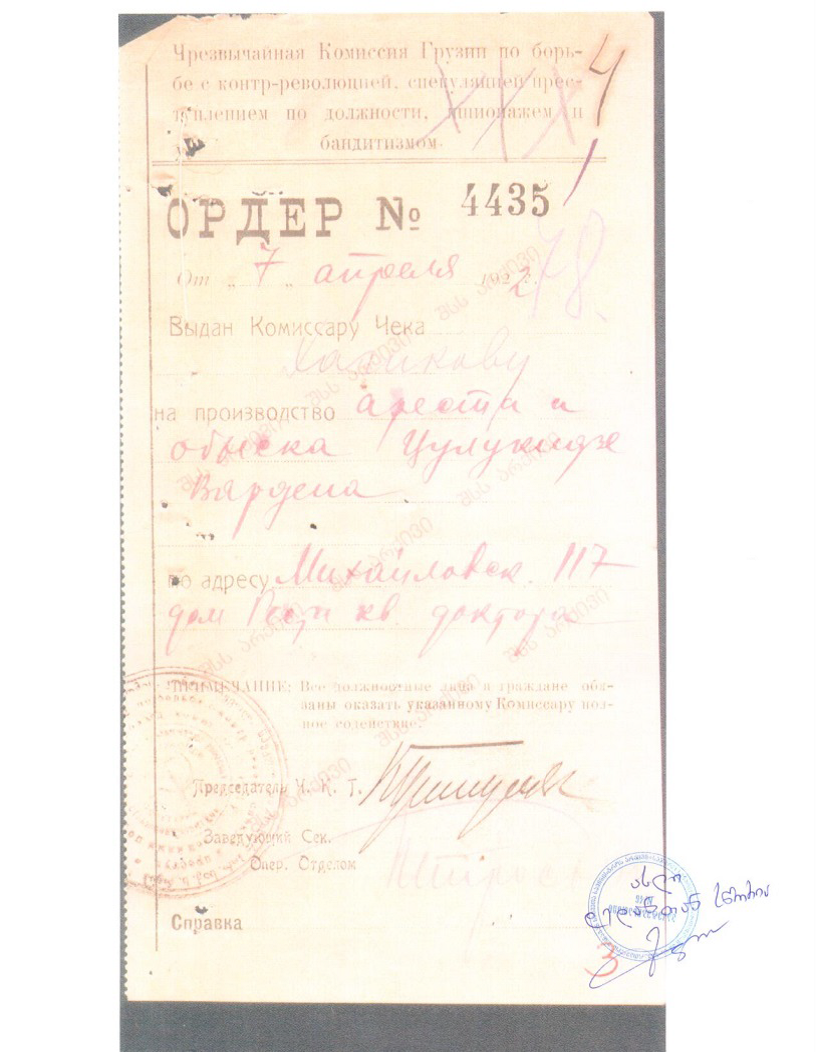 Чрезвычайная Комиссия Грузии по борь-
бе с контр-революцией, спекуляцией прес-
туплением по должности, шпионажем и
бандитизмом.
4
ОРДЕР № 4435
От „ 7 „ апреля 1922
78.
Выдан Комиссару Чека
на производство ареста и
обыска Цулукидзе
Вардена
по адресу Михайловск. 117
дом кв. доктора
ПРИМЕЧАНИЕ: Все должностные лица и граждане обя-
заны оказать указанному Комиссару пол-
ное содействие.
Председатель Ч. К. Г.
Заведующий Сек.
Опер. Отделом
Справка
ასლი
დედანთან სწორია
3